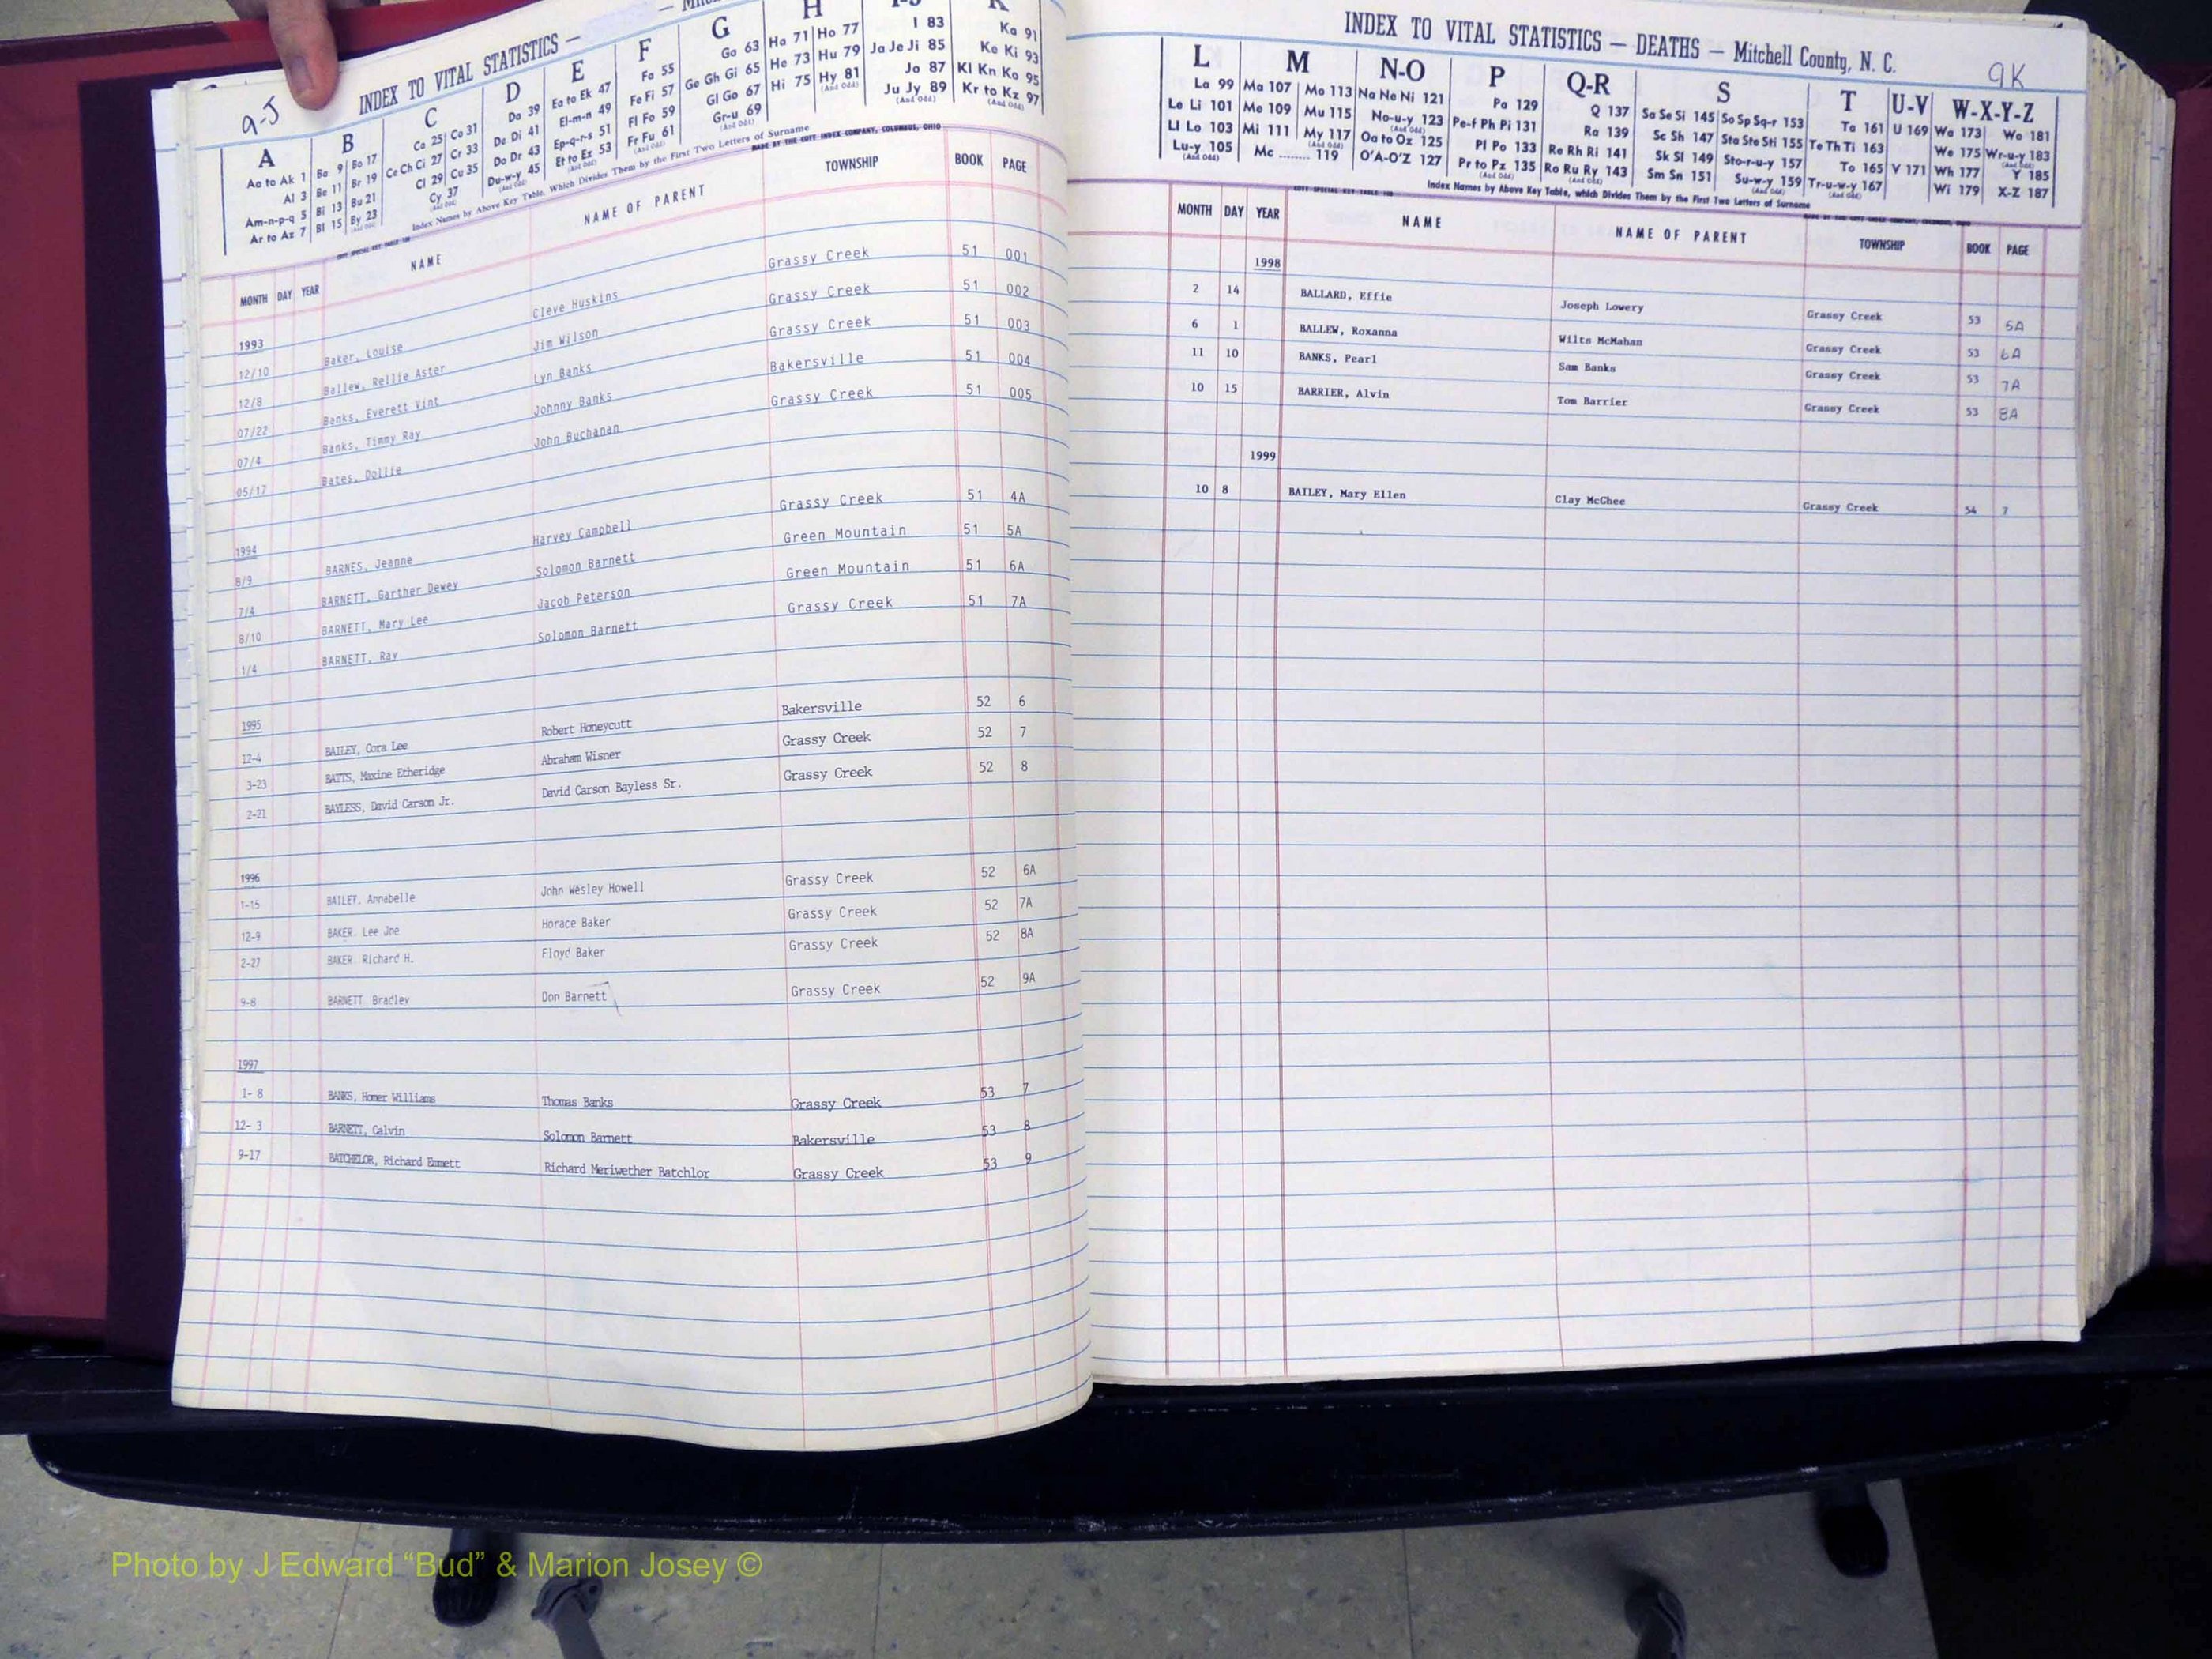 9-J
INDEX TO VITAL STATISTICS —
A B C D E F G H K
Aa to Ak 1 Ba 9 Bo 17 Ca 25 Co 31 Da 39 Ea to Ek 47 Fa 55 Ga 63 Ha 71 Ho 77 I 83 Ka 91
Al 3 Be 11 Br 19 Ce Ch Ci 27 Cr 33 De Di 41 El-m-n 49 Fe Fi 57 Ge Gh Gi 65 He 73 Hu 79 Ja Je Ji 85 Ke Ki 93
Am-n-p-q 5 Bi 13 Bu 21 Cl 29 Cu 35 Do Dr 43 Ep-q-r-s 51 Fl Fo 59 Gl Go 67 Hi 75 Hy 81 Jo 87 Kl Kn Ko 95
Ar to Az 7 Bl 15 By 23 Cy 37 Du-w-y 45 Et to Ez 53 Fr Fu 61 Gr-u 69 Ju Jy 89 Kr to Kz 97
Index Names by Above Key Table, Which Divides Them by the First Two Letters of Surname
MADE BY THE COTT INDEX COMPANY, COLUMBUS, OHIO
MONTH DAY YEAR NAME NAME OF PARENT TOWNSHIP BOOK PAGE
1993
12/10 Baker, Louise Cleve Huskins Grassy Creek 51 001
12/8 Ballew, Rellie Aster Jim Wilson Grassy Creek 51 002
07/22 Banks, Everett Vint Lyn Banks Grassy Creek 51 003
07/4 Banks, Timmy Ray Johnny Banks Bakersville 51 004
05/17 Bates, Dollie John Buchanan Grassy Creek 51 005
1994
8/9 BARNES, Jeanne Harvey Campbell Grassy Creek 51 4A
7/4 BARNETT, Garther Dewey Solomon Barnett Green Mountain 51 5A
8/10 BARNETT, Mary Lee Jacob Peterson Green Mountain 51 6A
1/4 BARNETT, Ray Solomon Barnett Grassy Creek 51 7A
1995
12-4 BAILEY, Cora Lee Robert Honeycutt Bakersville 52 6
3-23 BATTS, Maxine Etheridge Abraham Wisner Grassy Creek 52 7
2-21 BAYLESS, David Carson Jr. David Carson Bayless Sr. Grassy Creek 52 8
1996
1-15 BAILEY, Annabelle John Wesley Howell Grassy Creek 52 6A
12-9 BAKER, Lee Joe Horace Baker Grassy Creek 52 7A
2-27 BAKER, Richard H. Floyd Baker Grassy Creek 52 8A
9-8 BARNETT, Bradley Don Barnett Grassy Creek 52 9A
1997
1- 8 BANKS, Homer Williams Thomas Banks Grassy Creek 53 7
12- 3 BARNETT, Calvin Solomon Barnett Bakersville 53 8
9-17 BATCHELOR, Richard Emmett Richard Meriwether Batchlor Grassy Creek 53 9
INDEX TO VITAL STATISTICS — DEATHS — Mitchell County, N. C.
9K
L M N-O P Q-R S T U-V W-X-Y-Z
La 99 Ma 107 Mo 113 Na Ne Ni 121 Pa 129 Q 137 Sa Se Si 145 So Sp Sq-r 153 Ta 161 U 169 Wa 173 Wo 181
Le Li 101 Me 109 Mu 115 No-u-y 123 Pe-f Ph Pi 131 Ra 139 Sc Sh 147 Sta Ste Sti 155 Te Th Ti 163 We 175 Wr-u-y 183
Ll Lo 103 Mi 111 My 117 Oa to Oz 125 Pl Po 133 Re Rh Ri 141 Sk Sl 149 Sto-r-u-y 157 To 165 V 171 Wh 177 Y 185
Lu-y 105 Mc ........ 119 O'A-O'Z 127 Pr to Pz 135 Ro Ru Ry 143 Sm Sn 151 Su-w-y 159 Tr-u-w-y 167 Wi 179 X-Z 187
Index Names by Above Key Table, which Divides Them by the First Two Letters of Surname
MONTH DAY YEAR NAME NAME OF PARENT TOWNSHIP BOOK PAGE
1998
2 14 BALLARD, Effie Joseph Lowery Grassy Creek 53 5A
6 1 BALLEW, Roxanna Wilts McMahan Grassy Creek 53 6A
11 10 BANKS, Pearl Sam Banks Grassy Creek 53 7A
10 15 BARRIER, Alvin Tom Barrier Grassy Creek 53 8A
1999
10 8 BAILEY, Mary Ellen Clay McGhee Grassy Creek 54 7
Photo by J Edward “Bud” & Marion Josey ©